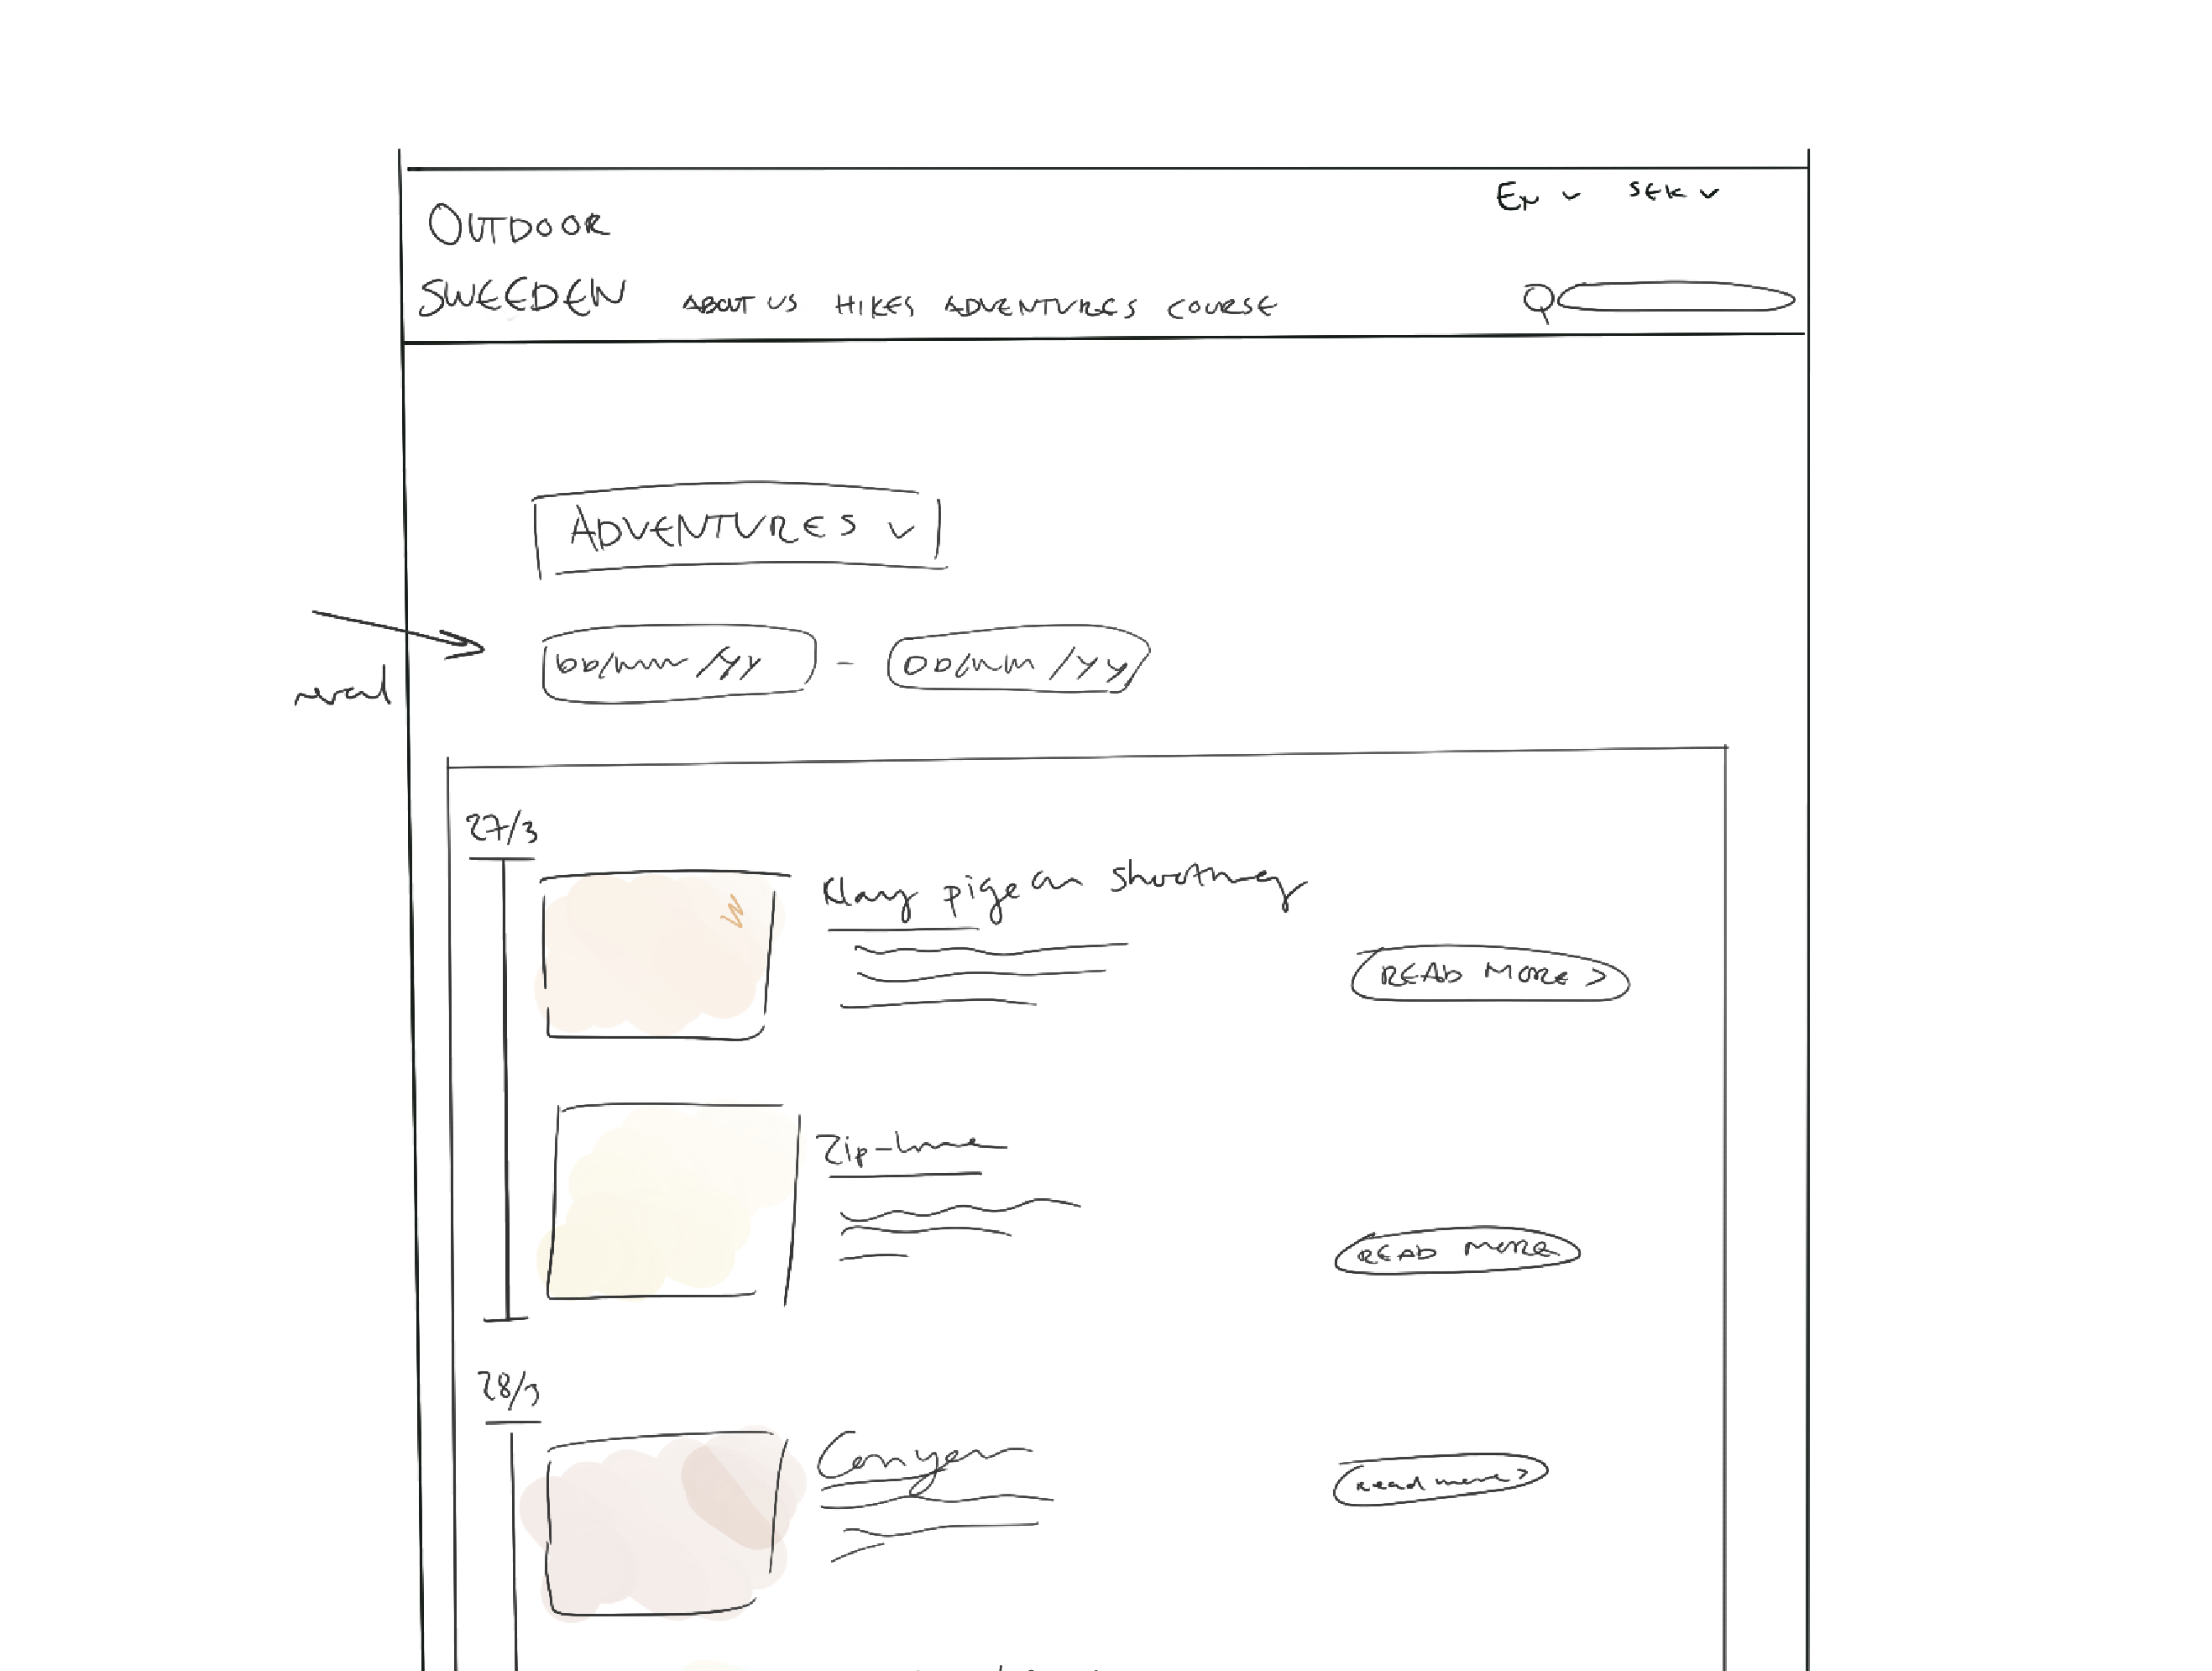 EN ˅ SEK ˅
OUTDOOR
SWEEDEN ABOUT US HIKES ADVENTURES COURSE
ADVENTURES ˅
DD/MM/YY - DD/MM/YY
27/3
Klay pigeon shooting
READ MORE >
Zip-line
READ MORE
28/3
Canyon
Read more >